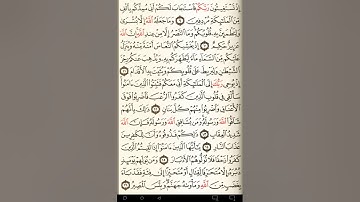 إِذْ تَسْتَغِيثُونَ رَبَّكُمْ فَاسْتَجَابَ لَكُمْ أَنِّي مُمِدُّكُم بِأَلْفٍ
مِّنَ الْمَلَائِكَةِ مُرْدِفِينَ ٩ وَمَا جَعَلَهُ اللَّهُ إِلَّا بُشْرَىٰ
وَلِتَطْمَئِنَّ بِهِ قُلُوبُكُمْ وَمَا النَّصْرُ إِلَّا مِنْ عِندِ اللَّهِ إِنَّ اللَّهَ
عَزِيزٌ حَكِيمٌ ١٠ إِذْ يُغَشِّيكُمُ النُّعَاسَ أَمَنَةً مِّنْهُ وَيُنَزِّلُ
عَلَيْكُم مِّنَ السَّمَاءِ مَاءً لِّيُطَهِّرَكُم بِهِ وَيُذْهِبَ عَنكُمْ رِجْزَ
الشَّيْطَانِ وَلِيَرْبِطَ عَلَىٰ قُلُوبِكُمْ وَيُثَبِّتَ بِهِ الْأَقْدَامَ ١١
إِذْ يُوحِي رَبُّكَ إِلَى الْمَلَائِكَةِ أَنِّي مَعَكُمْ فَثَبِّتُوا الَّذِينَ آمَنُوا
سَأُلْقِي فِي قُلُوبِ الَّذِينَ كَفَرُوا الرُّعْبَ فَاضْرِبُوا فَوْقَ
الْأَعْنَاقِ وَاضْرِبُوا مِنْهُمْ كُلَّ بَنَانٍ ١٢ ذَٰلِكَ بِأَنَّهُمْ
شَاقُّوا اللَّهَ وَرَسُولَهُ وَمَن يُشَاقِقِ اللَّهَ وَرَسُولَهُ فَإِنَّ اللَّهَ
شَدِيدُ الْعِقَابِ ١٣ ذَٰلِكُمْ فَذُوقُوهُ وَأَنَّ لِلْكَافِرِينَ
عَذَابَ النَّارِ ١٤ يَا أَيُّهَا الَّذِينَ آمَنُوا إِذَا لَقِيتُمُ الَّذِينَ
كَفَرُوا زَحْفًا فَلَا تُوَلُّوهُمُ الْأَدْبَارَ ١٥ وَمَن يُوَلِّهِمْ يَوْمَئِذٍ
دُبُرَهُ إِلَّا مُتَحَرِّفًا لِّقِتَالٍ أَوْ مُتَحَيِّزًا إِلَىٰ فِئَةٍ فَقَدْ بَاءَ
بِغَضَبٍ مِّنَ اللَّهِ وَمَأْوَاهُ جَهَنَّمُ وَبِئْسَ الْمَصِيرُ ١٦